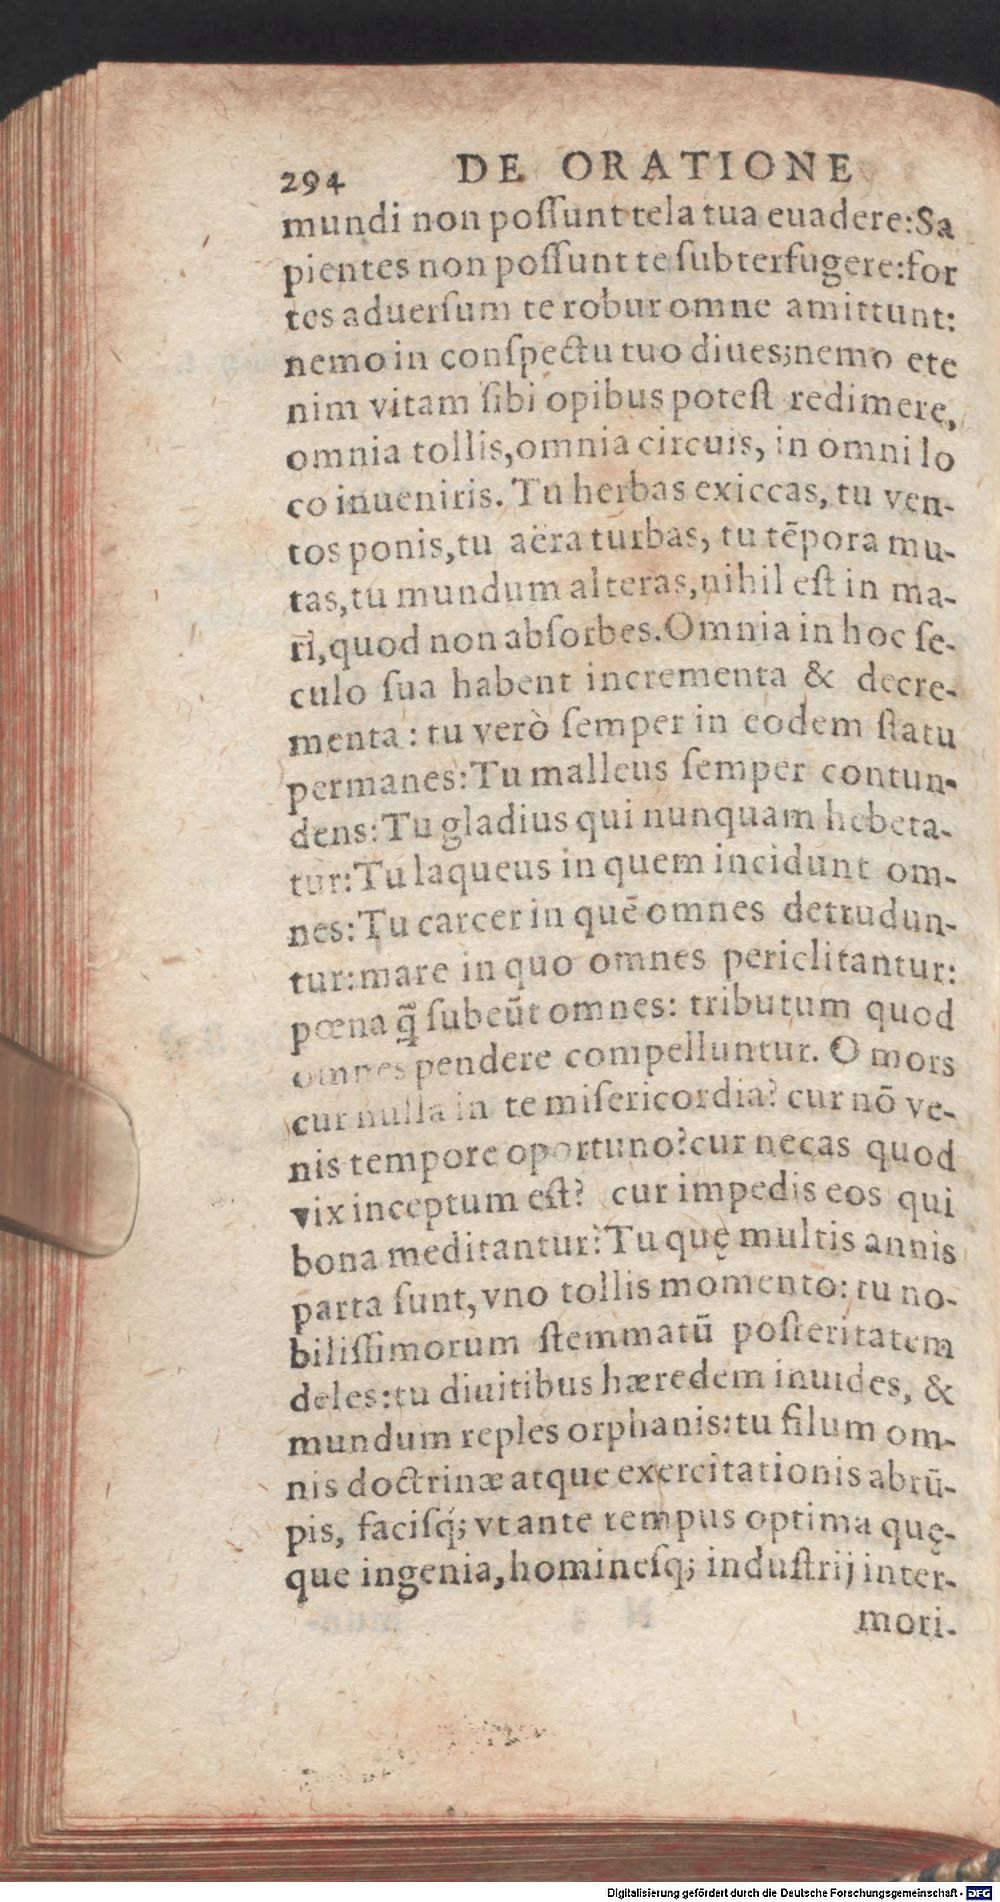 294 DE ORATIONE
mundi non poſſunt tela tua euadere:Sa
pientes non poſſunt te ſubterfugere:for
tes aduerſum te robur omne amittunt:
nemo in conſpectu tuo diues;nemo ete
nim vitam ſibi opibus poteſt redimere,
omnia tollis,omnia circuis, in omni lo
co inueniris. Tu herbas exiccas, tu ven-
tos ponis,tu aëra turbas, tu tēpora mu-
tas,tu mundum alteras,nihil eſt in ma-
ri,quod non abſorbes.Omnia in hoc ſe-
culo ſua habent incrementa & decre-
menta: tu verò ſemper in eodem ſtatu
permanes:Tu malleus ſemper contun-
dens:Tu gladius qui nunquam hebeta-
tur:Tu laqueus in quem incidunt om-
nes:Tu carcer in quē omnes detrudun-
tur:mare in quo omnes periclitantur:
pœna q̃ ſubeūt omnes: tributum quod
omnes pendere compelluntur. O mors
cur nulla in te miſericordia? cur nō ve-
nis tempore oportuno?cur necas quod
vix inceptum eſt? cur impedis eos qui
bona meditantur?Tu quę multis annis
parta ſunt,vno tollis momento: tu no-
biliſſimorum ſtemmatū poſteritatem
deles:tu diuitibus hæredem inuides, &
mundum reples orphanis:tu filum om-
nis doctrinæ atque exercitationis abrū-
pis, faciſq́; vt ante tempus optima quę-
que ingenia,homineſq; induſtrij inter-
mori-
Digitalisierung gefördert durch die Deutsche Forschungsgemeinschaft - DFG